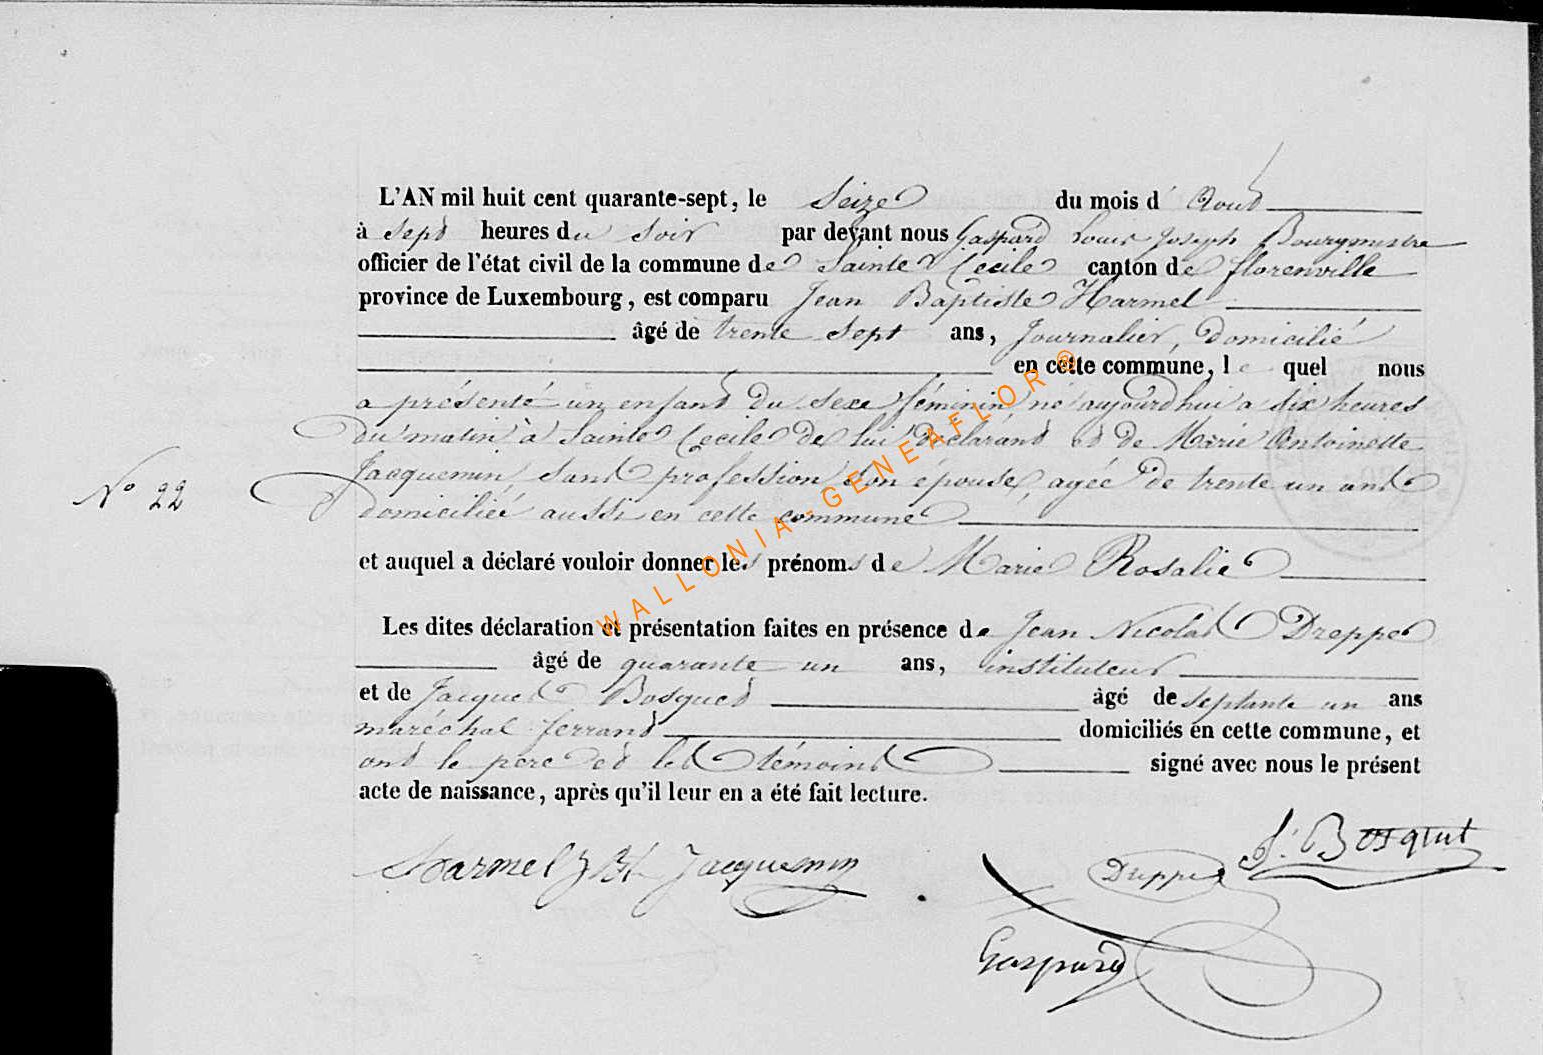 L'AN mil huit cent quarante-sept, le Seize du mois d' Aout
à sept heures du soir par devant nous Gaspard Louis Joseph Bourgmestre
officier de l'état civil de la commune de Sainte Cecile canton de florenville
province de Luxembourg, est comparu Jean Baptiste Harmel
âgé de trente sept ans, Journalier, domicilié
en cette commune, le quel nous
a présenté un enfant du sexe féminin né aujourd'hui a dix heures
du matin à Sainte Cecile de lui déclarant et de Marie Antoinette
Jacquemin, sans profession son épouse, agée de trente un ans
N° 22
domiciliée aussi en cette commune
et auquel a déclaré vouloir donner les prénoms de Marie Rosalie
Les dites déclaration et présentation faites en présence de Jean Nicolas Dreppe
âgé de quarante un ans, instituteur
et de Jacques Bosquet âgé de septante un ans
maréchal ferrant domiciliés en cette commune, et
ont le pere et les témoins signé avec nous le présent
acte de naissance, après qu'il leur en a été fait lecture.
Harmel J Bt Jacquemin
Dreppe
J. Bosquet
Gaspard
WALLONIA-GENEAFLOR®